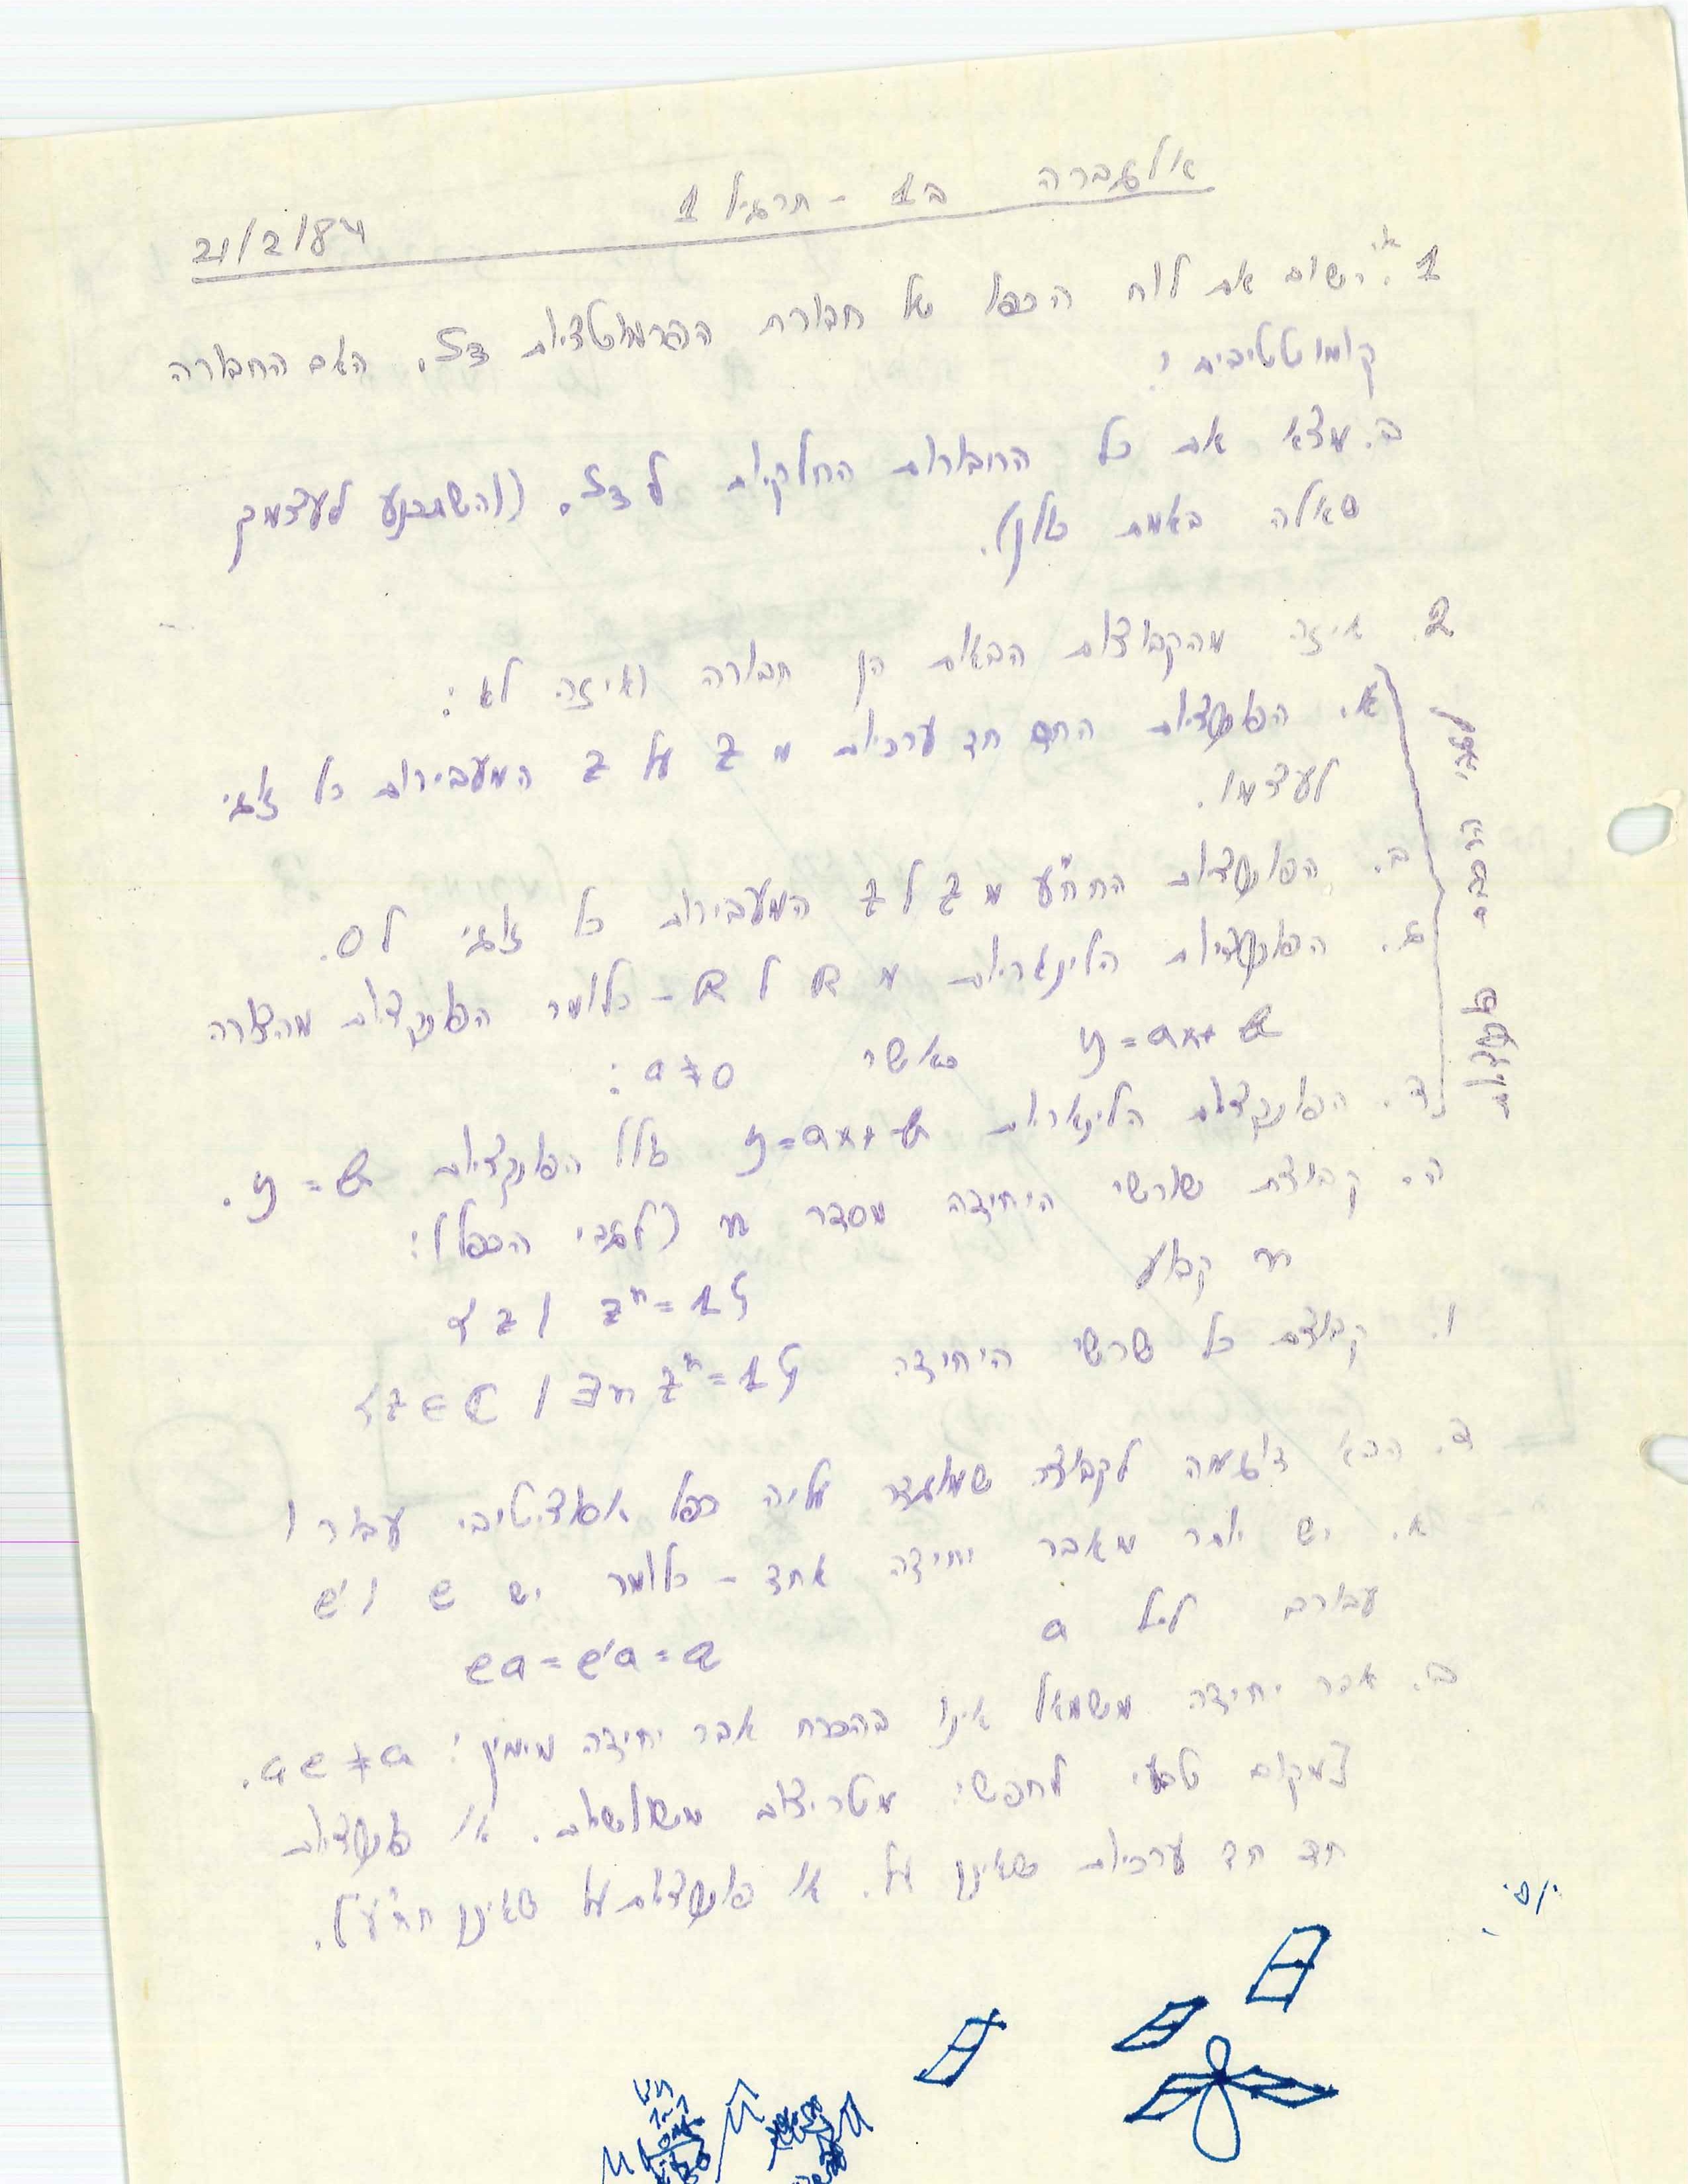 אלגברה ב1 - תרגיל 1 21/2/84
1 .א. רשום את לוח הכפל של חבורת הפרמוטציות S3. האם החבורה
קומוטטיבית?
ב. מצא את כל החבורות החלקיות ל S3. (והשתכנע לעצמך
שאלה באמת כולן).
2 איזה מהקבוצות הבאות הן חבורה ואיזה לא:
א. הפונקציות החד חד ערכיות מ Z על Z המעבירות כל זוגי
לעצמו.
ב. הפונקציות החח"ע מ Z ל Z המעבירות כל זוגי ל 0.
ג. הפונקציות הלינאריות מ R ל R - כלומר הפונקציות מהצורה
y=ax+b כאשר a≠0:
ד. הפונקציות הלינאריות y=ax+b כולל הפונקציות y=b.
לגבי הרכבת פונקציות
ה. קבוצת שורשי היחידה מסדר n (לגבי הכפל):
n קבוע
{z | zⁿ=1}
ו. קבוצת כל שרשי היחידה {z∈C | ∃n zⁿ=1}
הבא דוגמה לקבוצה שמוגדר עליה כפל אסוציטיבי עבורו
א. יש יותר מאבר יחידה אחד - כלומר יש e ו e'
עבורם לכל a
ea=e'a=a
ב. אבר יחידה משמאל אינו בהכרח אבר יחידה מימין: ae≠a.
[מקום טבעי לחפש: מטריצות משולשות. או פונקציות
חד חד ערכיות שאינן על. או פונקציות על שאינן חח"ע].